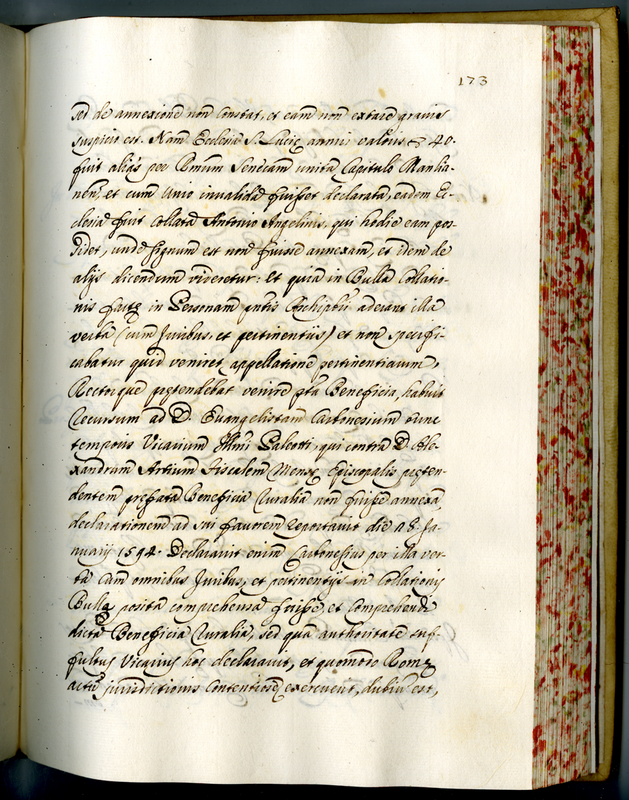 173
sed de annexione non constat, et eam non extare gravis
suspicio est. Nam Ecclesia S. Lucię annui valoris 40.
fuit aliãs per Summum unita Capitulo Manlia-
nen, et cum Unio invalida fuisset declarata, eadem Ec-
clesia fuit collata Antonio Angelino, qui hodie eam pos-
sidet, unde signum est non fuisse annexam, et idem de
alijs dicendum videretur: Et quia in Bulla Collatio-
nis factę in Personam pntis Archipbri aderant illa
verba (cum Iuribus, et pertinentiis) et non specifi-
cabatur quid veniret appellatione pertinentiarum,
Rectorque prętendebat venire pta Beneficia, habuit
recursum ad D. Evangelistam Carbonesium tunc
temporis Vicarium Illmi Paleotti, qui contra D. Ale-
xandrum Artium Fiscalem Mensę Episcopalis pręten-
dentem prefata Beneficia Curalia non fuisse annexa,
declarationem ad sui favorem reportavit die 18. Ia-
nuarij 1594. Declaravit enim Carbonesius per illa ver-
ba cum omnibus Iuribus, et pertinentijs in Collationis
Bulla posita comprehensa fuisse, et comprehendi
dicta Beneficia Curalia, sed qua authoritate suf-
fultus Vicarius hoc declaravit, et quomodo Romę
actu iurisdictionis contentiosę exercuerit, dubiu est,